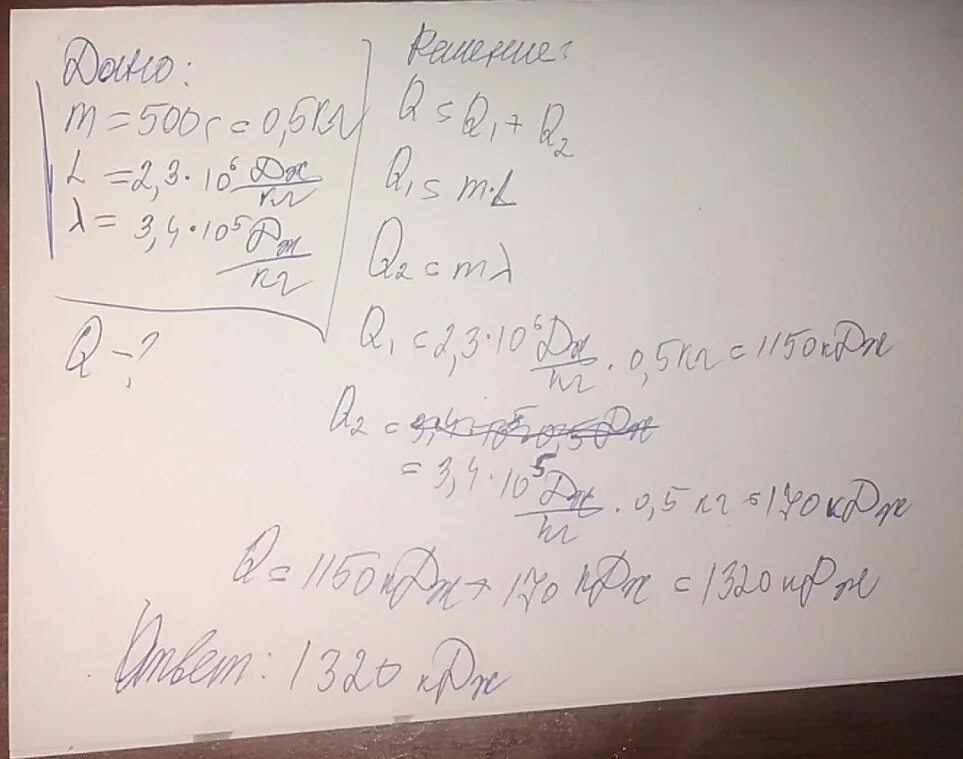 Дано:
m = 500г = 0,5кг
L = 2,3 · 10⁶ Дж/кг
λ = 3,4 · 10⁵ Дж/кг
Q - ?
Решение:
Q = Q₁ + Q₂
Q₁ = m·L
Q₂ = mλ
Q₁ = 2,3·10⁶ Дж/кг · 0,5кг = 1150кДж
Q₂ =
= 3,4·10⁵ Дж/кг · 0,5кг = 170кДж
Q = 1150кДж + 170кДж = 1320кДж
Ответ: 1320 кДж